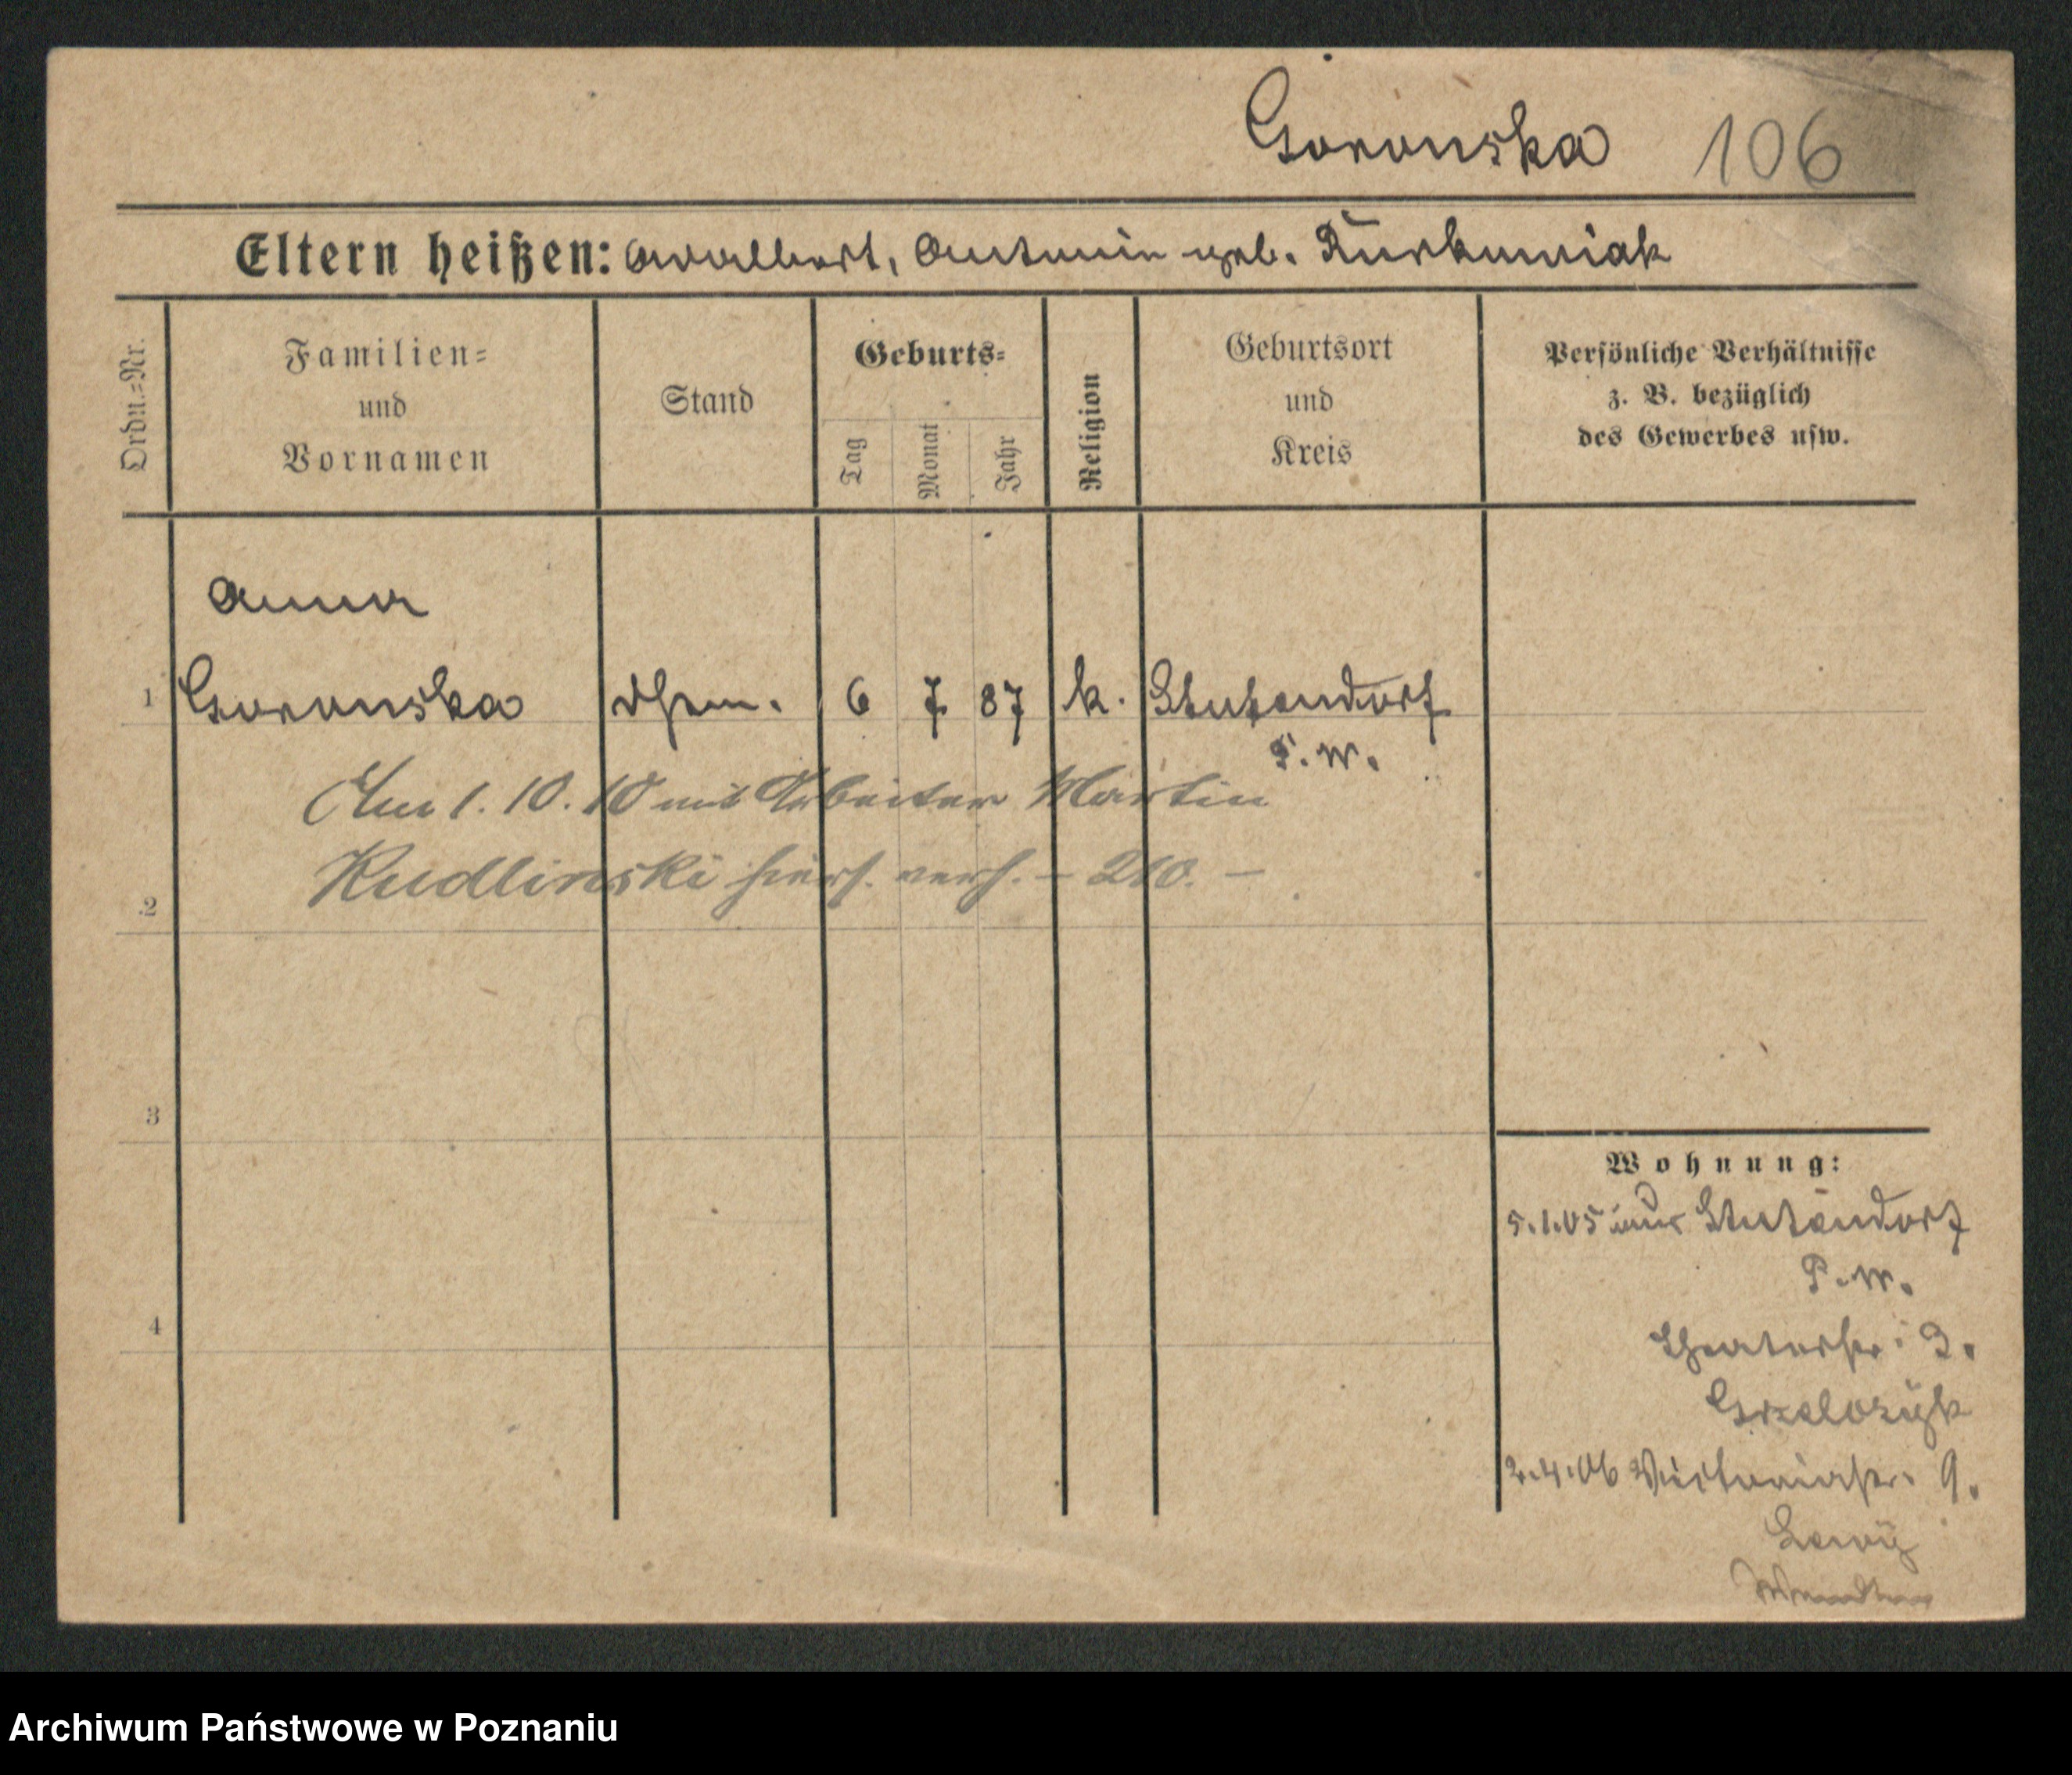 Goronska 106
Eltern heißen: Adalbert, Antonin geb. Kurkowiak
Ordn.=Nr.
Familien=
und
Vornamen
Stand
Geburts=
Tag
Monat
Jahr
Religion
Geburtsort
und
Kreis
Persönliche Verhältnisse
z. B. bezüglich
des Gewerbes usw.
Anna
1 Goronska 6 7 87 k. Stutendorf
P. W.
Am 1. 10. 10 mit Arbeiter Martin
Kudlinski hiers. verh. – 210. –
2
3
4
Wohnung:
5.1.05 aus Stutendorf
P. W.
Theaterstr. 3.
Grzelczyk
2.4.06 Victoriastr. 9.
Lewy
Archiwum Państwowe w Poznaniu